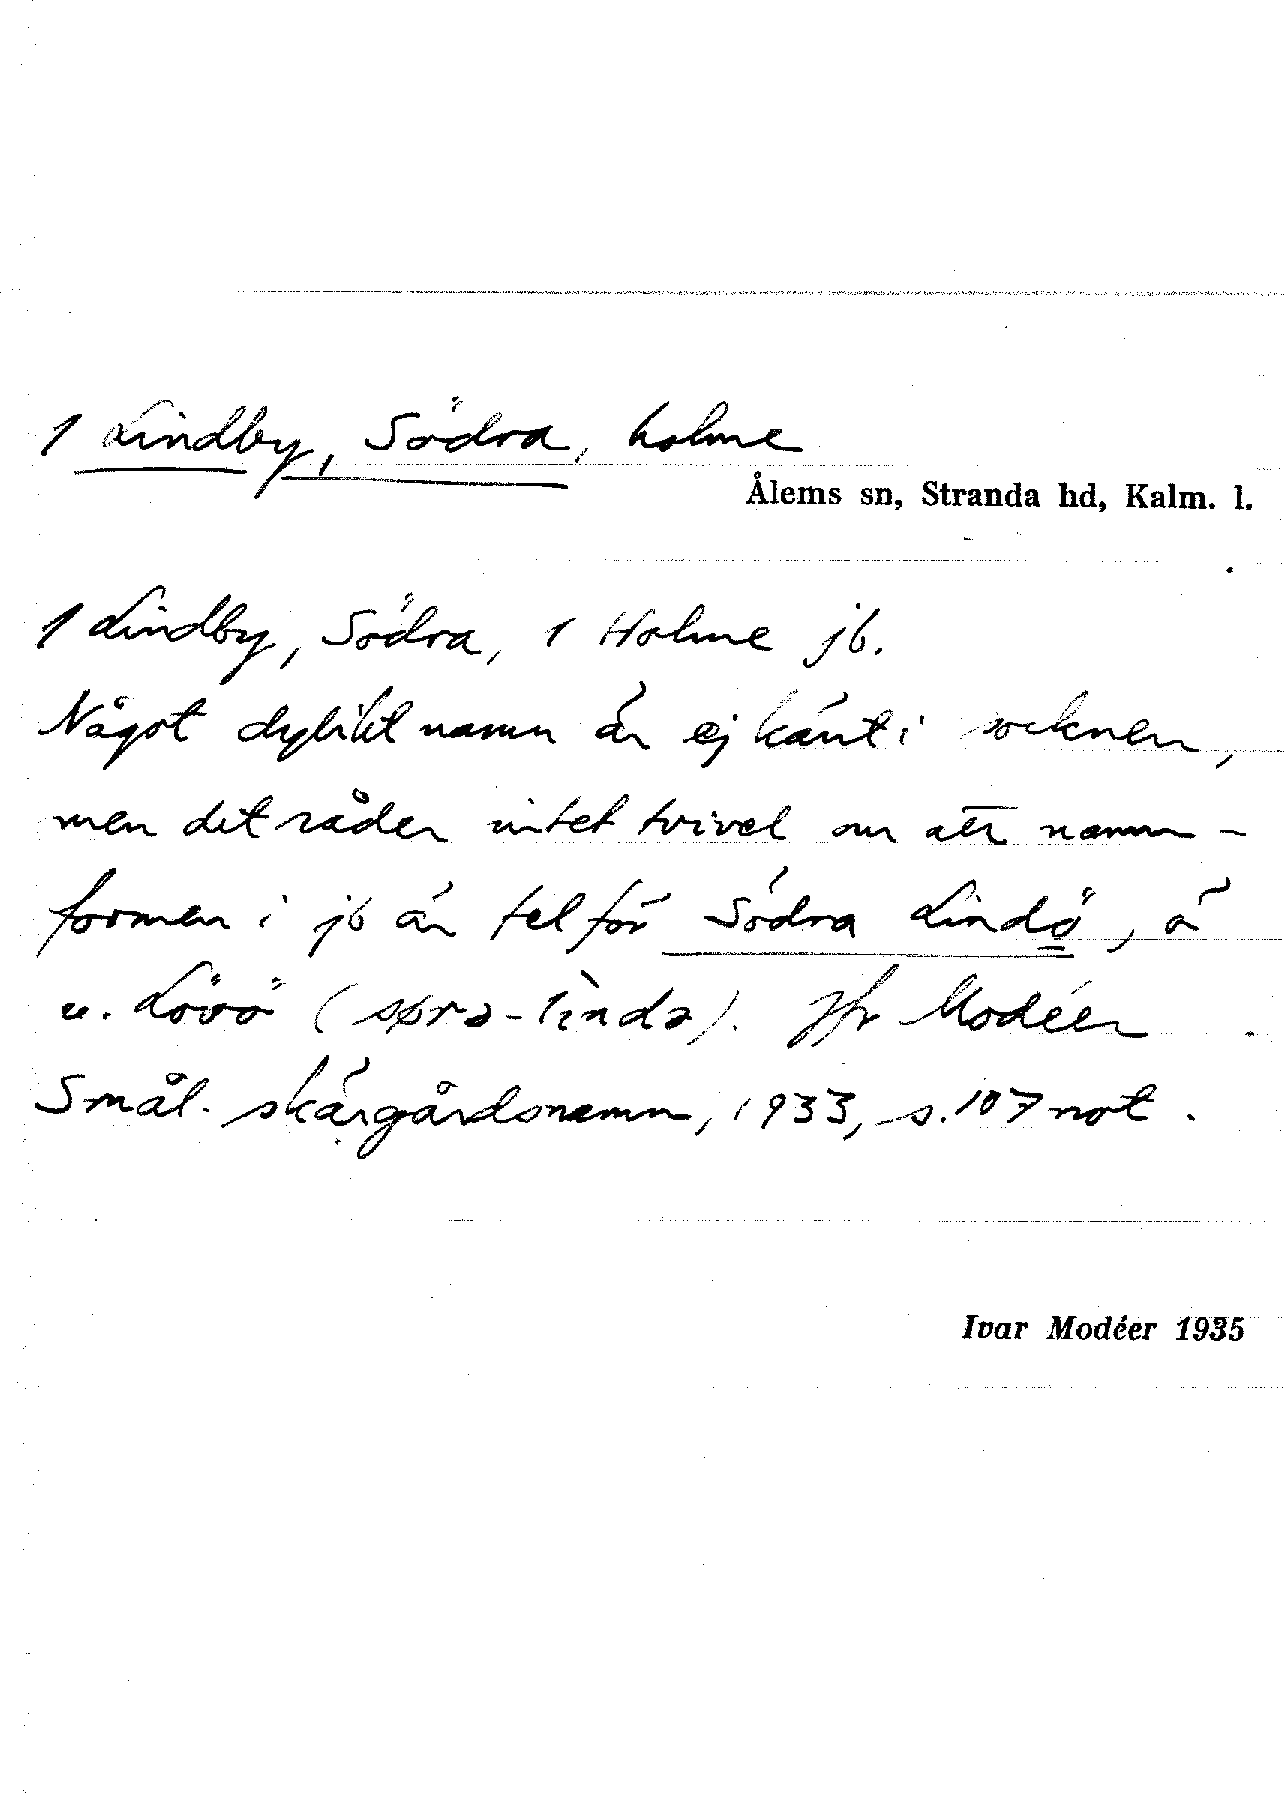 1 Lindby, Södra, holme
Ålems sn, Stranda hd, Kalm. l.
1 Lindby, Södra, 1 Holme jb.
Något dylikt namn är ej känt i socknen,
men det råder intet tvivel om att namn-
formen i jb är fel för Södra Lindö, ö
u. Lövö (sørə-lìndə). Jfr Modéer
Smål. skärgårdsnamn, 1933, s. 107 not.
Ivar Modéer 1935